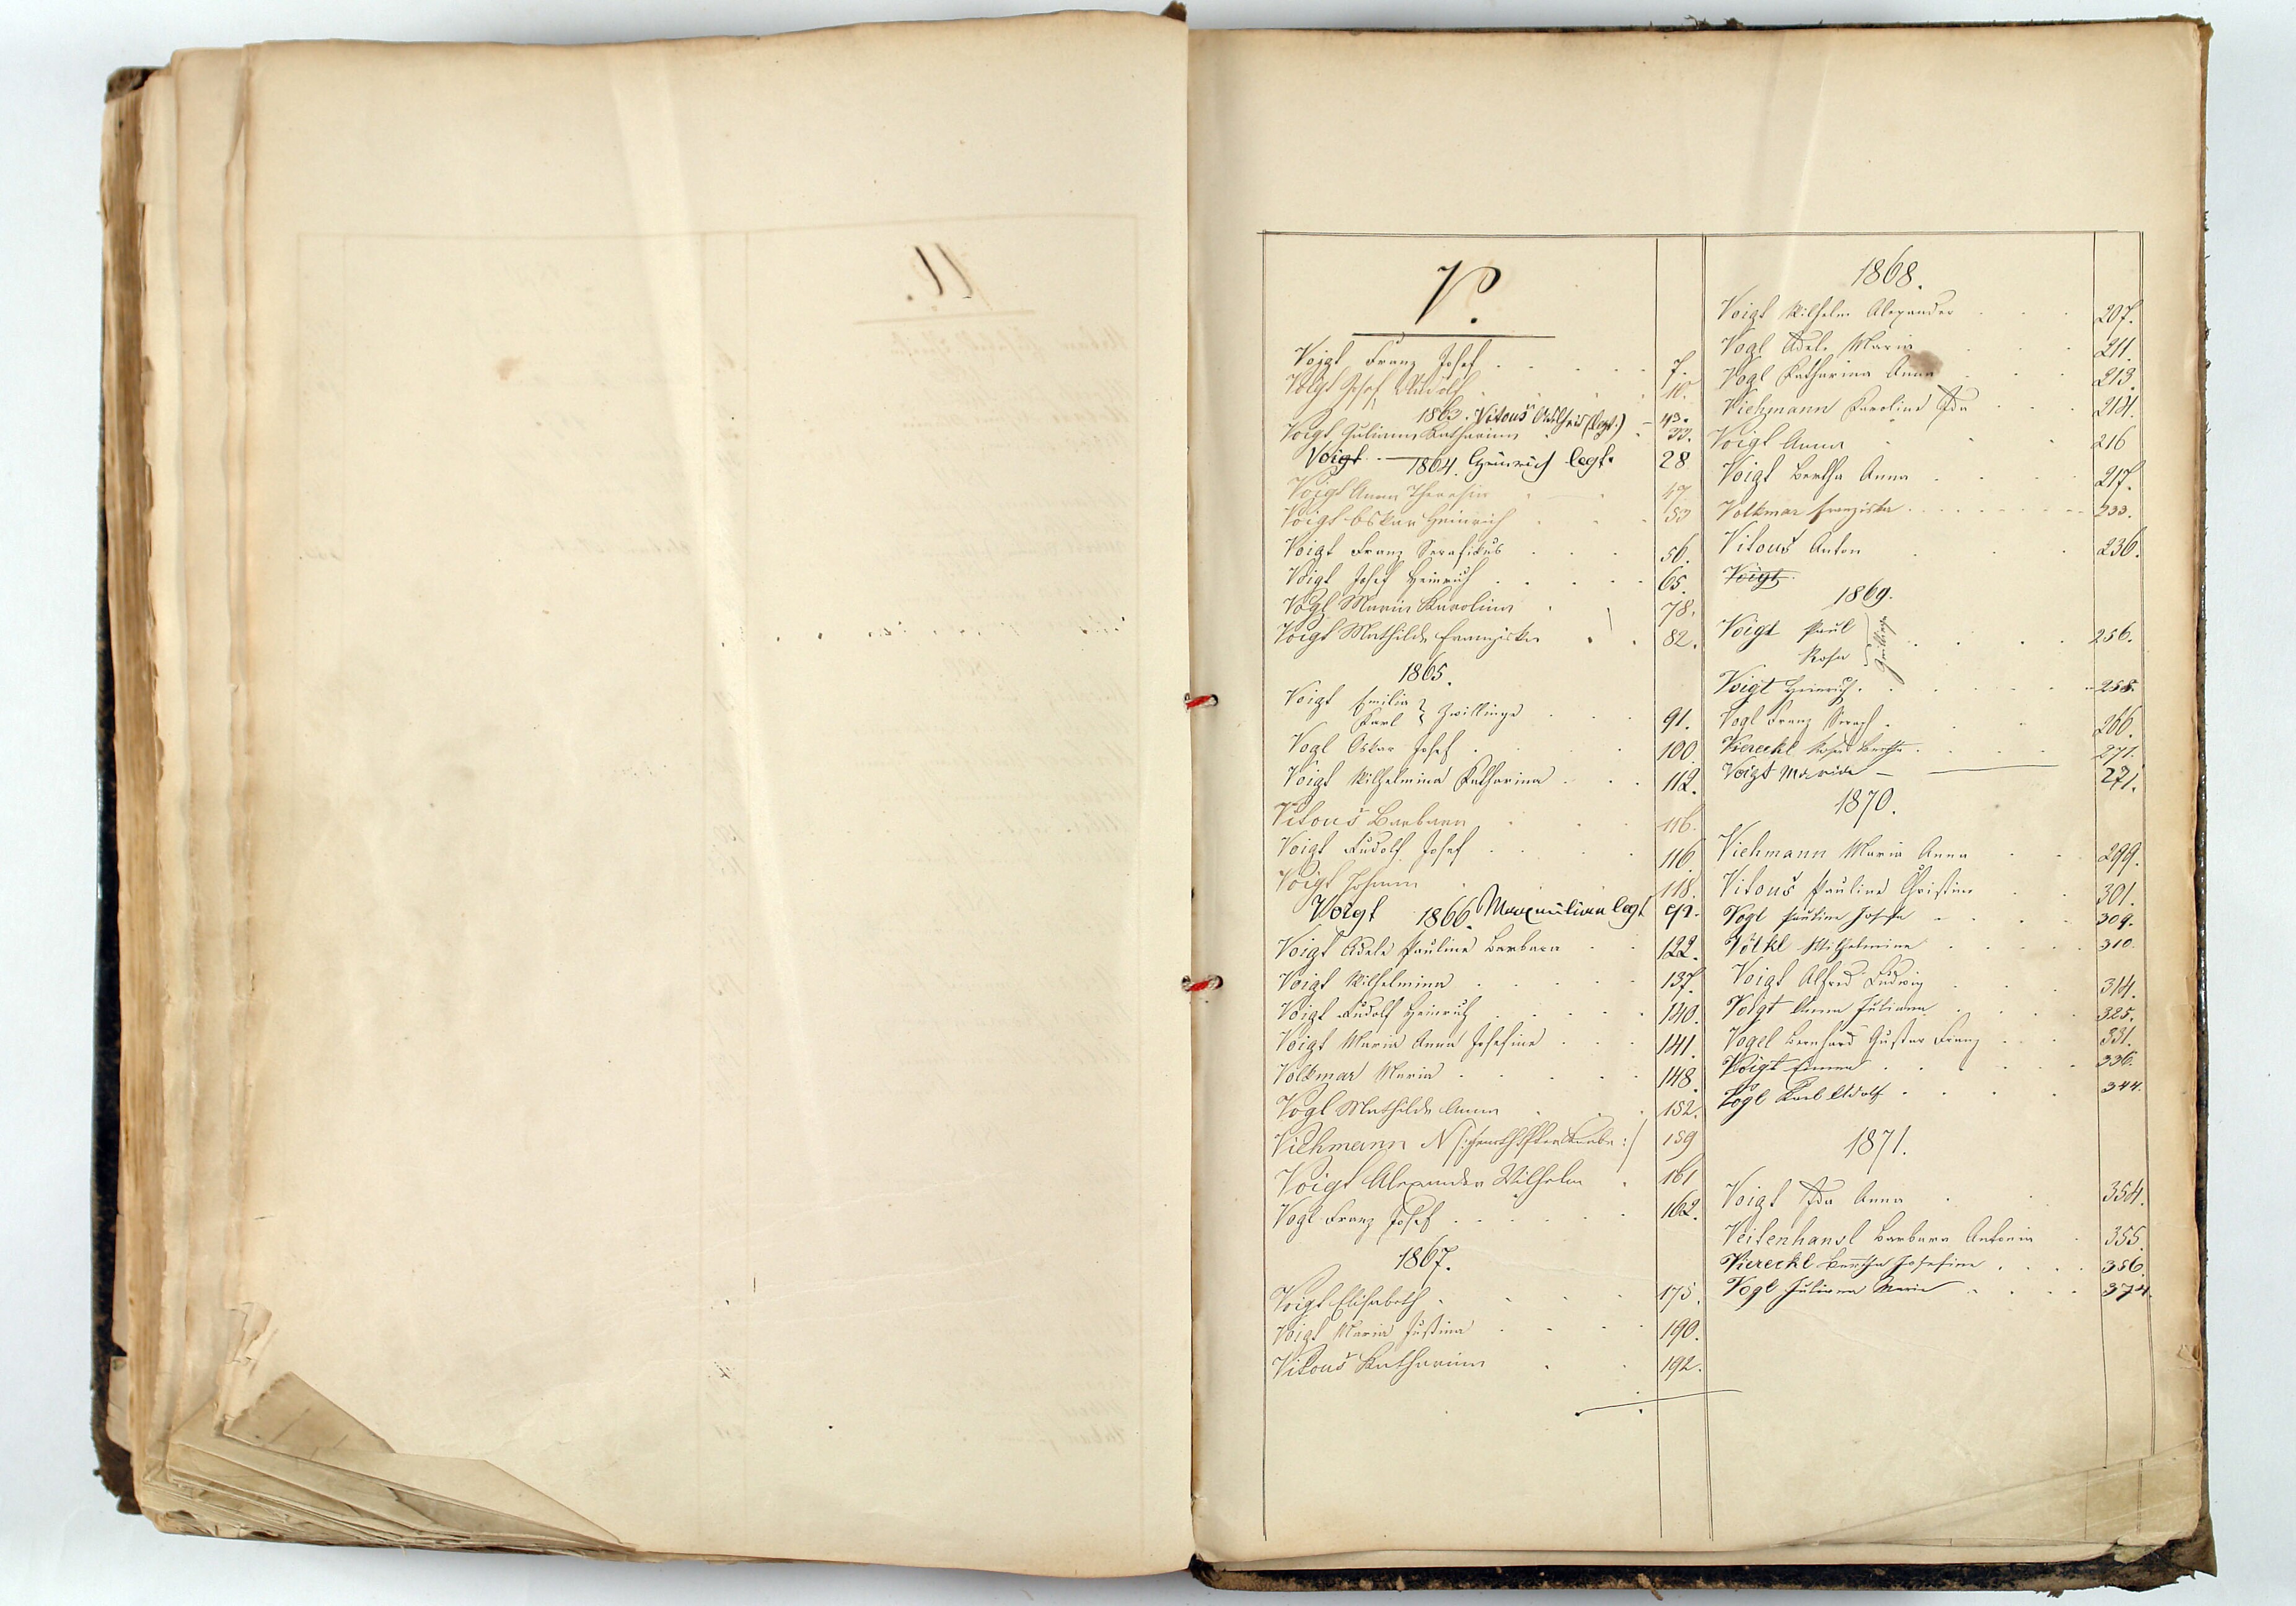 V.
Voigt Franz Josef 7.
Voigt Josef Rudolf 10.
1863. Vitouš (legt.) 43.
Voigt Juliana Katharina 33.
Voigt 1864. Heinrich legt. 28
Voigt Anna Theresia 47
Voigt Oskar Heinrich 53
Voigt Franz Serafikus 56.
Voigt Josef Heinrich 65.
Vogl Maria Karolina 78.
Voigt Mathilde Franziska 82.
1865.
Voigt Emilia
Karl } Zwillinge 91.
Vogl Oskar Josef 100.
Voigt Wilhelmina Katharina 112.
Vitouš Barbara 116.
Voigt Rudolf Josef 116
Voigt Johann 118.
Voigt 1866. Maximilian legt
Voigt Adele Pauline Barbara 122.
Voigt Wilhelmina 137.
Voigt Rudolf Heinrich 140.
Voigt Maria Anna Josefine 141.
Volkmar Maria 148.
Vogl Mathilde Anna 152.
Viehmann N 159
Voigt Alexander Wilhelm 161
Vogl Franz Josef 162.
1867.
Voigt Elisabeth 175.
Voigt Maria Justina 190.
Vitouš Katharina 192.
1868.
Voigt Wilhelm Alexander 207.
Vogl Adele Maria 211.
Vogl Katharina Anna 213.
Viehmann Karoline Ida 214.
Voigt Anna 216
Voigt Bertha Anna 217.
Volkmar Franziska 233.
Vitouš Anton 236.
Voigt
1869.
Voigt Paul
Rosa } Zwillinge 256.
Voigt Heinrich 258.
Vogl Franz Seraf. 266.
Viereckl Rosa Bertha 271.
Voigt Maria 271.
1870.
Viehmann Maria Anna 299.
Vitouš Pauline Christine 301.
Vogl Pauline Josefa 309.
Völkl Wilhelmine 310.
Voigt Alfred Ludwig 314.
Voigt Anna Juliana 325.
Vogel Bernhard Gustav Franz 331.
Voigt Emma 336.
Vogl Karl Adolf 344.
1871.
Voigt Ida Anna 354.
Veitenhansl Barbara Antonia 355.
Viereckl Bertha Josefine 356.
Vogl Juliana Maria 374.